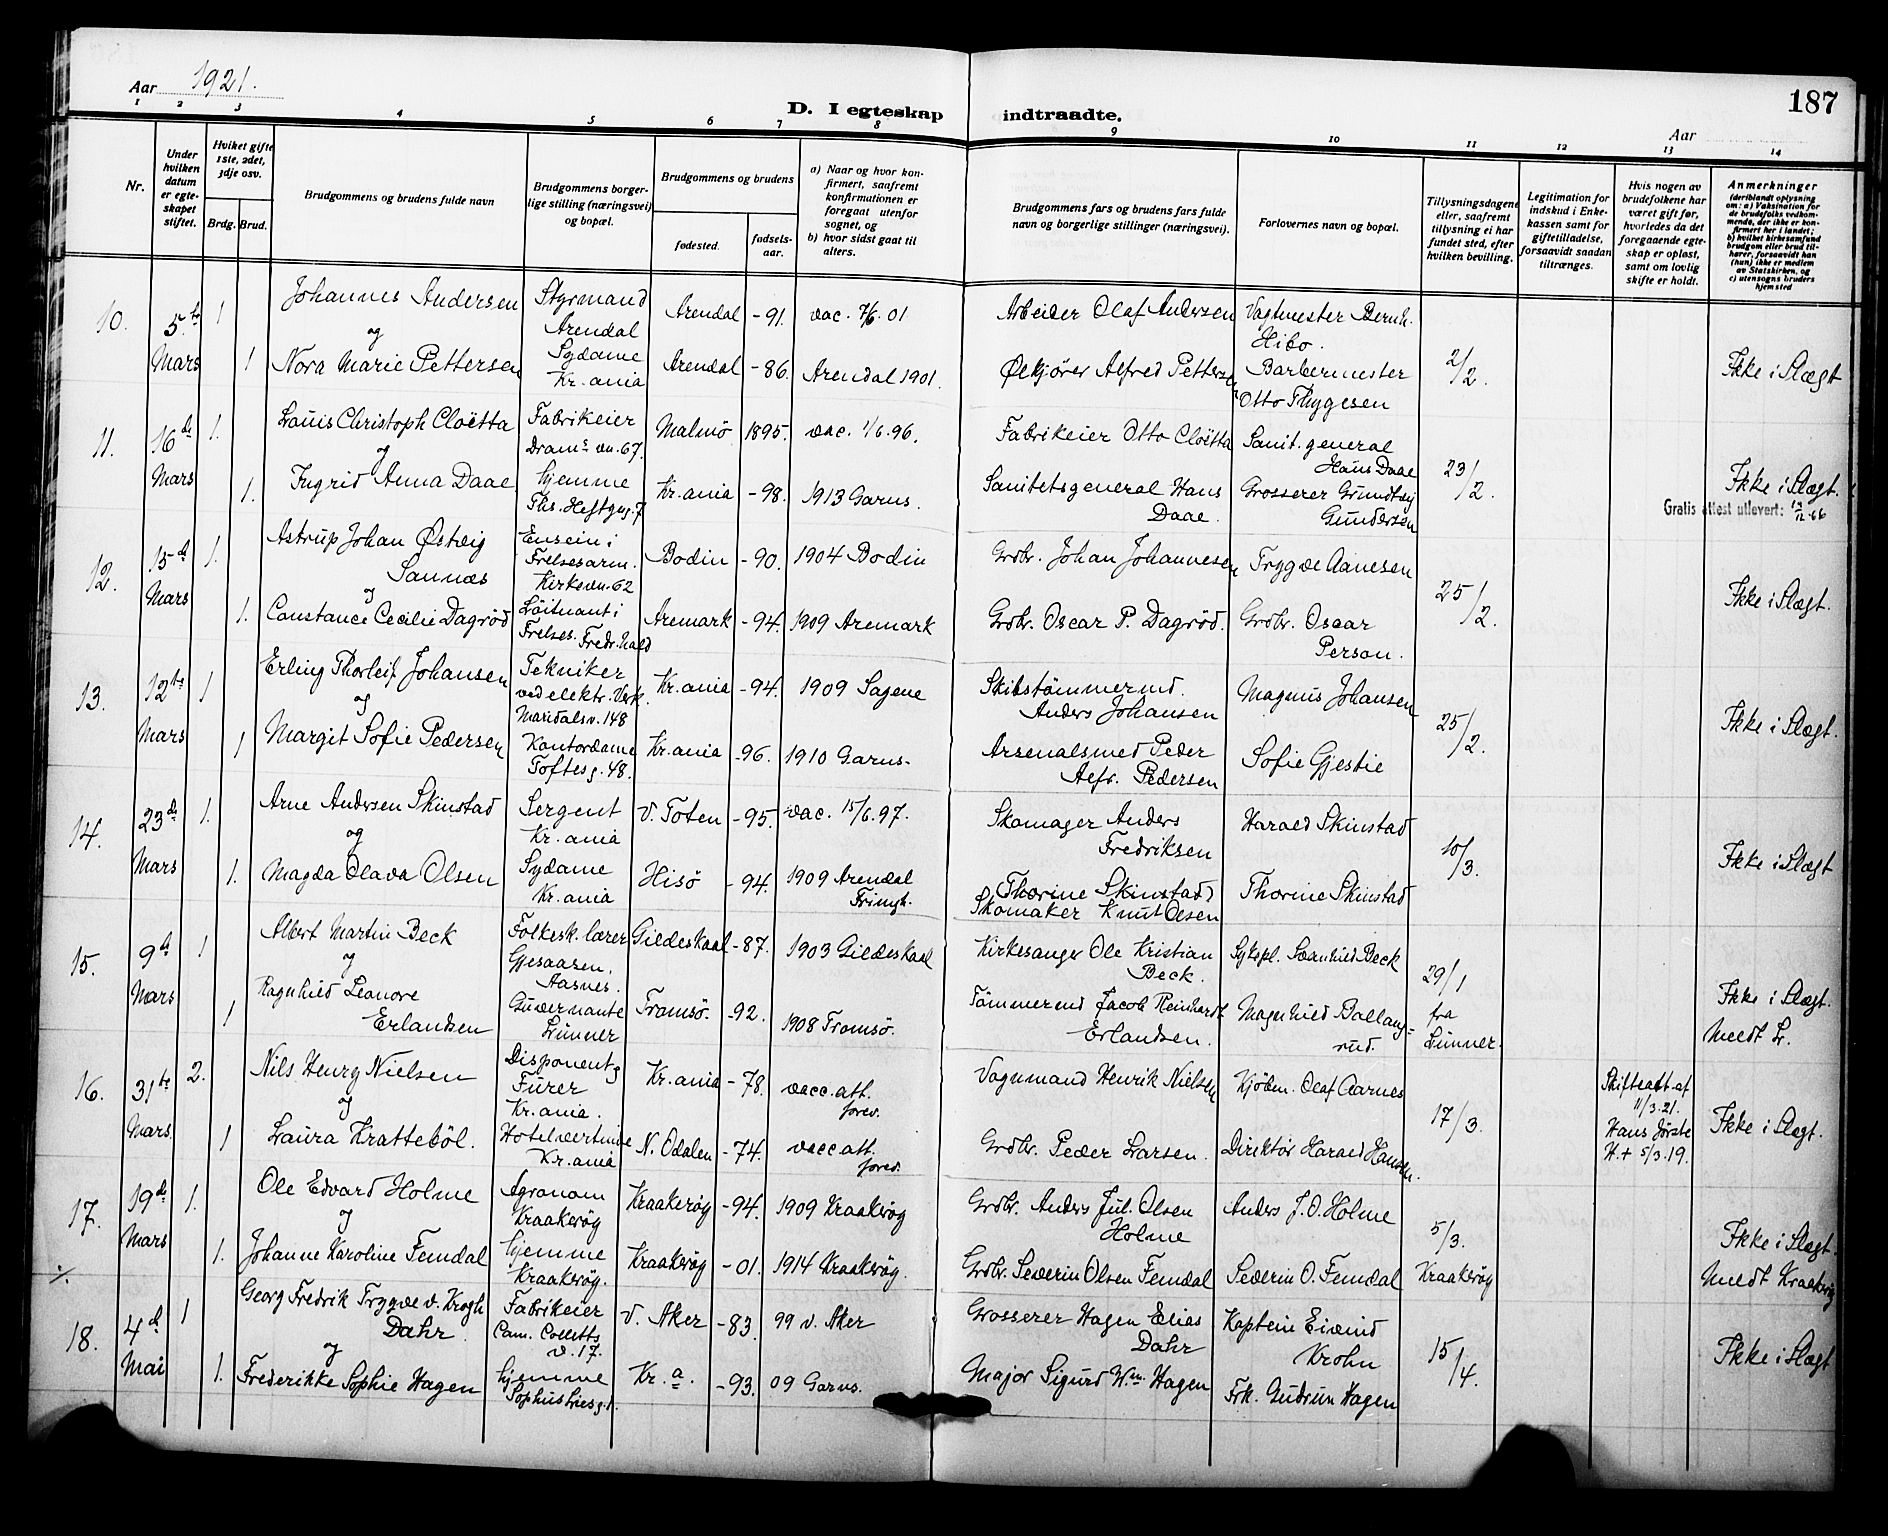 Aar 1921.
D. I egteskap indtraadte.
187
Aar
1 2 3 4 5 6 7 8 9 10 11 12 13 14
Nr.
Under hvilken datum er egteskapet stiftet.
Hvilket gifte 1ste, 2det, 3dje osv.
Brdg. Brud.
Brudgommens og brudens fulde navn
Brudgommens borgerlige stilling (næringsvei) og bopæl.
Brudgommens og brudens
fødested.
fødselsaar.
a) Naar og hvor konfirmert, saafremt konfirmationen er foregaat utenfor sognet, og
b) hvor sidst gaat til alters.
Brudgommens fars og brudens fars fulde navn og borgerlige stillinger (næringsvei).
Forlovernes navn og bopæl.
Tillysningsdagene eller, saafremt tillysning ei har fundet sted, efter hvilken bevilling.
Legitimation for indskud i Enkekassen samt for giftetilladelse, forsaavidt saadan tiltrænges.
Hvis nogen av brudefolkene har været gift før, hvorledes da det foregaaende egteskap er opløst, samt om lovlig skifte er holdt.
Anmerkninger (deriblandt oplysning om: a) Vaksination for de brudefolks vedkommende, der ikke er konfirmert her i landet; b) hvilket kirkesamfund brudgom eller brud tilhører, forsaavidt han (hun) ikke er medlem av Statskirken, og c) utensogns bruders hjemsted
10. 5te Mars 1 Johannes Andersen Styrmand Arendal Arendal -91. vac. 7/6 01 Arbeider Olaf Andersen Vagtmester Bernh. Hibo. 2/2. Ikke i Slægt
og
1 Nora Marie Pettersen Sydame Kr.ania Arendal -86. Arendal 1901. Ølkjører Alfred Pettersen Barbermester Otto Thygesen
11. 16de Mars 1. Louis Christoph Cloëtta Fabrikeier Drams vn. 67. Malmö 1895. vac. 1/6.96. Fabrikeier Otto Cloëtta Sanit.general Hans Daae 23/2. Ikke i Slægt.
og
1. Ingrid Anna Daae hjemme Ths. Heftysg. 7 Kr.ania -98. 1913 Garns. Sanitetsgeneral Hans Daae. Grosserer Grundtvig Gundersen Gratis attest utlevert: 12/12-66
12. 15de Mars 1. Astrup Johan Østvig Sannæs Ensein i Frelsesarm. Kirkevn. 62 Bodin -90. 1904 Bodin Grdbr. Johan Johannesen Trygve Aanesen 25/2. Ikke i Slægt.
og
1. Constance Cecilie Dagrød Løitnant i Frelses. Fredr.hald Aremark -94. 1909 Aremark Grdbr. Oscar P. Dagrød. Grdbr. Oscar Person.
13. 12te Mars 1 Erling Thorleif Johansen Tekniker ved elektr. Verk. Maridalsv. 148 Kr.ania -94. 1909 Sagene Skibstømmermd. Anders Johansen Magnus Johansen 25/2. Ikke i Slægt.
og
1 Margit Sofie Pedersen Kontordame Toftesg. 48. Kr.ania -96. 1910 Garns. Arsenalsmed Peder Alfr. Pedersen Sofie Gjestie
14. 23de Mars 1. Arne Andersen Skinstad Sergent Kr.ania V. Toten -95. vac. 15/6.97. Skomager Anders Fredriksen Harald Skinstad 10/3. Ikke i Slægt
og
1. Magda Olava Olsen Sydame Kr.ania Hisö -94. 1909 Arendal Frimgh. Thorine Skinstad Skomaker Knut Olsen Thorine Skinstad
15. 9de Mars 1 Albert Martin Beck Folkesk.lærer Gjesaasen. Aasnes. Gildeskaal -87. 1903 Gildeskaal Kirkesanger Ole Kristian Beck. Sykepl. Svanhild Beck 29/1 fra Lunner. Ikke i Slægt.
og
1 Ragnhild Leonore Erlandsen Guvernante Lunner Tromsö. -92. 1908 Tromsö. Tømmermd Jacob Reinhardt Erlandsen. Magnhild Ballangrud. Meldt L.
16. 31te Mars 2. Nils Henry Nielsen Disponent Furer Kr.ania. Kr.ania -78. vacc. att. forev. Vognmand Henrik Nielsen Kjøbm. Olaf Aarnes 17/3. Skifteatt. af 11/3.21. Hans første H. + 5/3.19. Ikke i Slægt.
og
1 Laura Krattebøl. Hotelvertinde Kr.ania N. Odalen -74. vacc. att. forev. Grdbr. Peder Larsen. Direktør Harald Hansen.
17. 19de Mars 1. Ole Edvard Holme Agronom Kraakerøy Kraakerøy -94. 1909 Kraakerøy Grdbr. Anders Jul. Olsen Holme Anders J. O. Holme 5/3. Kraakerøy Ikke i Slægt.
og
1. Johanne Karoline Femdal hjemme Kraakerøy. Kraakerøy -01. 1914 Kraakerøy. Grdbr. Severin Olsen Femdal Severin O. Femdal Meldt Kraakerøy
18. 4de Mai 1 Georg Fredrik Trygve v. Krogh Dahr. Fabrikeier Cam. Colletts v. 17. V. Aker -83. 99 v. Aker Grosserer Hagen Elias Dahr Kaptein Eivind Krohn 15/4. Ikke i Slægt
og
1. Frederikke Sophie Hagen hjemme Sophus Liesg. 1. Kr.a. -93. 09 Garns. Major Sigurd Wm. Hagen Frk. Gudrun Hagen